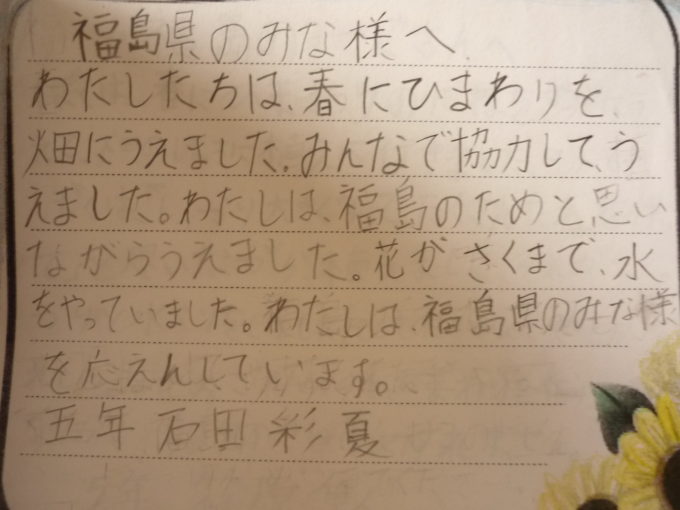 福島県のみな様へ
わたしたちは、春にひまわりを
畑にうえました。みんなで協力して、う
えました。わたしは、福島のためと思い
ながらうえました。花がさくまで、水
をやっていました。わたしは、福島県のみな様
を応えんしています。
五年 石田 彩夏